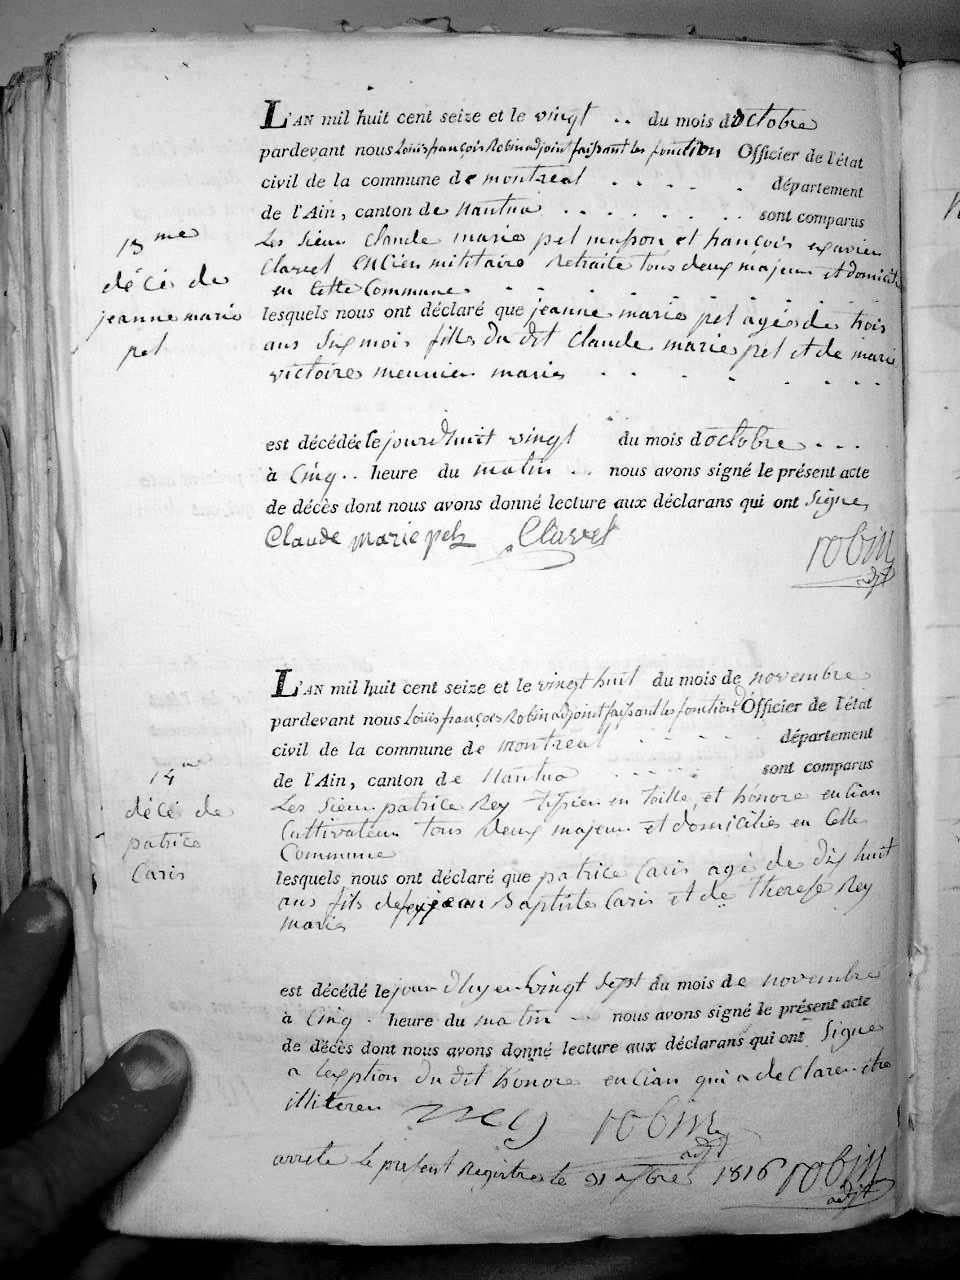 L'AN mil huit cent seize et le vingt .. du mois d'octobre
pardevant nous Louis françois Robin adjoint faisant les fonction Officier de l'état
civil de la commune de montreal . . . . . département
de l'Ain, canton de Nantua . . . . . . . sont comparus
Les Sieur Claude marie pel masson et françois exavier
Clavel encien militaire retraite tous deux majeur et domicilié
en Cette Commune
13me
décé de
jeanne marie
pel
lesquels nous ont déclaré que jeanne marie pel agée de trois
ans Six mois fille du dit Claude marie pel et de marie
victoire meunier marié
est décédée le jourdhuit vingt du mois d'octobre . . .
à Cinq .. heure du matin .. nous avons signé le présent acte
de décès dont nous avons donné lecture aux déclarans qui ont Signe
Claude marie pel Clavel robin
adjt
L'AN mil huit cent seize et le vingt huit du mois de novembre
pardevant nous Louis françois Robin adjoint faisant les fonction d'Officier de l'état
civil de la commune de montreal . . . . . département
de l'Ain, canton de Nantua . . . . . . sont comparus
Les Sieur patrice Rey tissier en toille et honore encian
Cultivateur tous deux majeur et domiciliés en Cette
Commune
14me
décé de
patrice
Caris
lesquels nous ont déclaré que patrice Caris agé de dix huit
ans fils de feu jean Baptiste Caris et de therese Rey
mariés
est décédé le jour vingt sept du mois de novembre
à Cinq . heure du matin .. nous avons signé le présent acte
de décès dont nous avons donné lecture aux déclarans qui ont Signe
a lexption du dit honore encian qui a declaré être
illiteré Rey robin
adjt
arrete le present Registre le 31 1816 robin
adjt